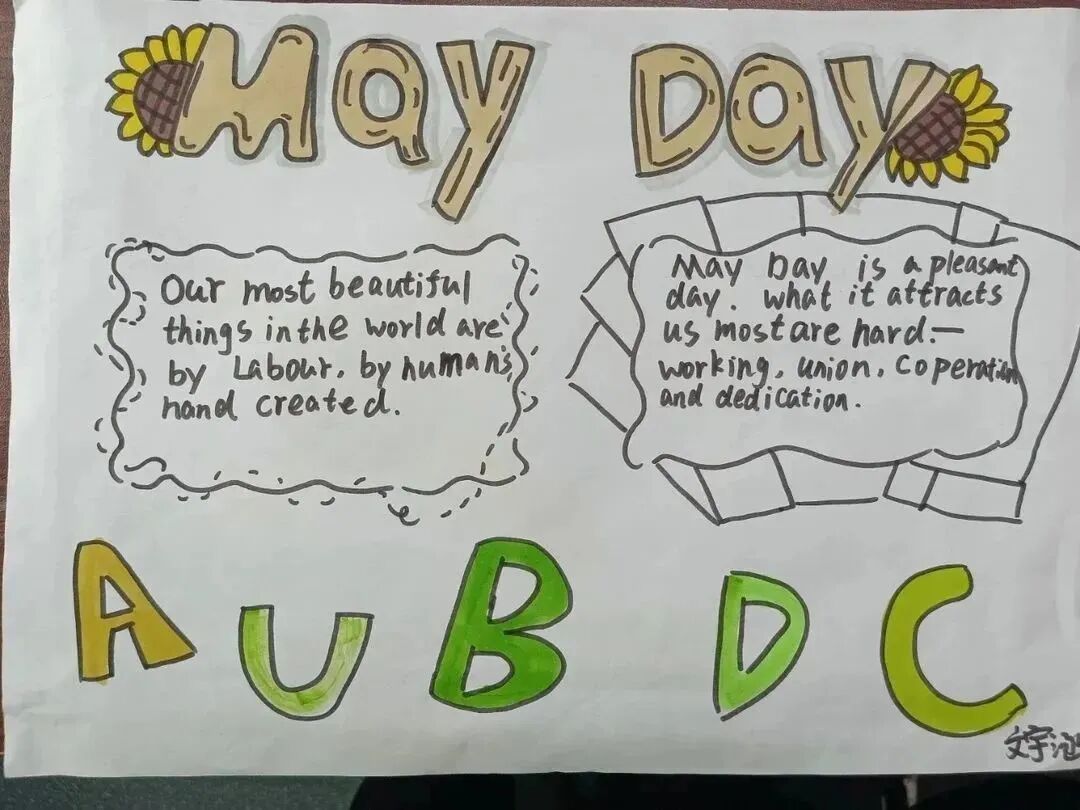 May Day
Our most beautiful
things in the world are
by Labour. by human's
hand created.
May Day is a pleasant
day. what it attracts
us most are hard—
working, union, Coperation
and dedication.
A U B D C
文宇